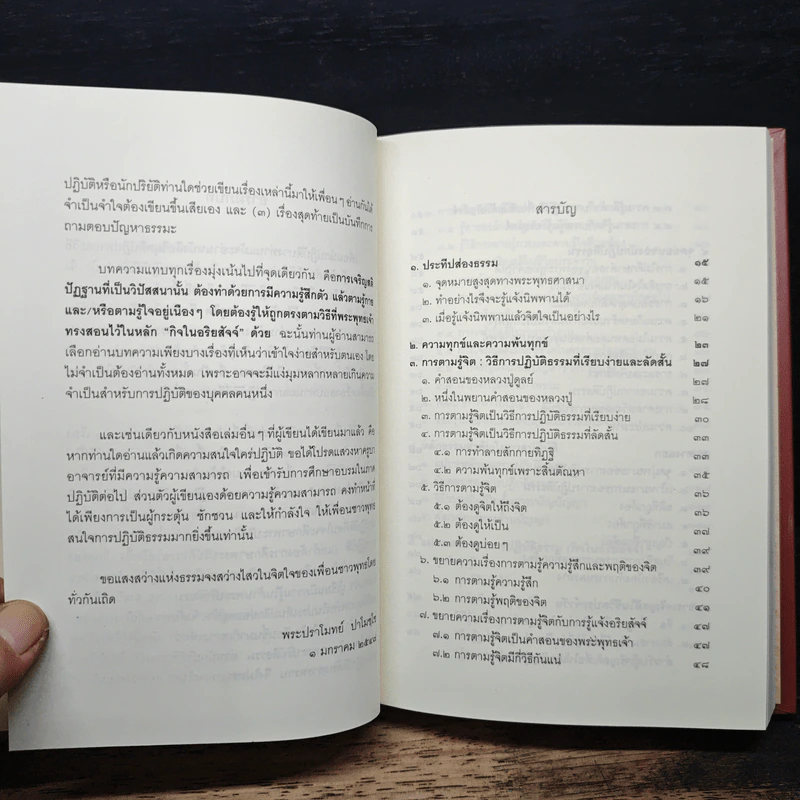 ปฏิบัติหรือนักปริยัติท่านใดช่วยเขียนเรื่องเหล่านี้มาให้เพื่อนๆ อ่านกันได้
จำเป็นจำใจต้องเขียนขึ้นเสียเอง และ (๓) เรื่องสุดท้ายเป็นบันทึกการ
ถามตอบปัญหาธรรมะ
บทความแทบทุกเรื่องมุ่งเน้นไปที่จุดเดียวกัน คือการเจริญสติ
ปัฏฐานที่เป็นวิปัสสนานั้น ต้องทำด้วยการมีความรู้สึกตัว แล้วตามรู้กาย
และ/หรือตามรู้ใจอยู่เนืองๆ โดยต้องรู้ให้ถูกตรงตามวิธีที่พระพุทธเจ้า
ทรงสอนไว้ในหลัก “กิจในอริยสัจจ์” ด้วย ฉะนั้นท่านผู้อ่านสามารถ
เลือกอ่านบทความเพียงบางเรื่องที่เห็นว่าเข้าใจง่ายสำหรับตนเอง โดย
ไม่จำเป็นต้องอ่านทั้งหมด เพราะอาจจะมีแง่มุมหลากหลายเกินความ
จำเป็นสำหรับการปฏิบัติของบุคคลคนหนึ่ง
และเช่นเดียวกับหนังสือเล่มอื่นๆ ที่ผู้เขียนได้เขียนมาแล้ว คือ
หากท่านใดอ่านแล้วเกิดความสนใจใคร่ปฏิบัติ ขอได้โปรดแสวงหาครูบา
อาจารย์ที่มีความรู้ความสามารถ เพื่อเข้ารับการศึกษาอบรมในภาค
ปฏิบัติต่อไป ส่วนตัวผู้เขียนเองด้อยความรู้ความสามารถ คงทำหน้าที่
ได้เพียงการเป็นผู้กระตุ้น ชักชวน และให้กำลังใจ ให้เพื่อนชาวพุทธ
สนใจการปฏิบัติธรรมมากยิ่งขึ้นเท่านั้น
ขอแสงสว่างแห่งธรรมจงสว่างไสวในจิตใจของเพื่อนชาวพุทธโดย
ทั่วกันเถิด
พระปราโมทย์ ปาโมชฺโช
๑ มกราคม ๒๕๔๗
สารบัญ
๑. ประทีปส่องธรรม ๑๕
๑. จุดหมายสูงสุดทางพระพุทธศาสนา ๑๕
๒. ทำอย่างไรจึงจะรู้แจ้งนิพพานได้ ๑๖
๓. เมื่อรู้แจ้งนิพพานแล้วจิตใจเป็นอย่างไร ๒๑
๒. ความทุกข์และความพ้นทุกข์ ๒๓
๓. การตามรู้จิต : วิธีการปฏิบัติธรรมที่เรียบง่ายและลัดสั้น ๒๗
๑. คำสอนของหลวงปู่ดูลย์ ๒๗
๒. หนึ่งในพยานคำสอนของหลวงปู่ ๒๘
๓. การตามรู้จิตเป็นวิธีการปฏิบัติธรรมที่เรียบง่าย ๓๐
๔. การตามรู้จิตเป็นวิธีการปฏิบัติธรรมที่ลัดสั้น ๓๓
๔.๑ การทำลายสักกายทิฏฐิ ๓๓
๔.๒ ความพ้นทุกข์เพราะสิ้นตัณหา ๓๕
๕. วิธีการตามรู้จิต ๓๖
๕.๑ ต้องดูจิตให้ถึงจิต ๓๖
๕.๒ ต้องดูให้เป็น ๓๗
๕.๓ ต้องดูบ่อยๆ ๓๙
๖. ขยายความเรื่องการตามรู้ความรู้สึกและพฤติของจิต ๓๙
๖.๑ การตามรู้ความรู้สึก ๔๐
๖.๒ การตามรู้พฤติของจิต ๔๑
๗. ขยายความเรื่องการตามรู้จิตกับการรู้แจ้งอริยสัจจ์ ๔๗
๗.๑ การตามรู้จิตเป็นคำสอนของพระพุทธเจ้า ๔๗
๗.๒ การตามรู้จิตมีกี่วิธีกันแน่ ๔๘